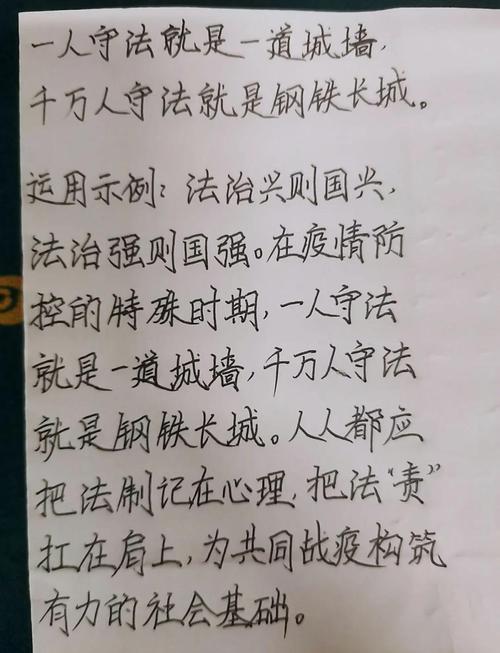 一人守法就是一道城墙，
千万人守法就是钢铁长城。
运用示例：法治兴则国兴，
法治强则国强。在疫情防
控的特殊时期，一人守法
就是一道城墙，千万人守法
就是钢铁长城。人人都应
把法制记在心理，把法“责”
扛在肩上，为共同战疫构筑
有力的社会基础。